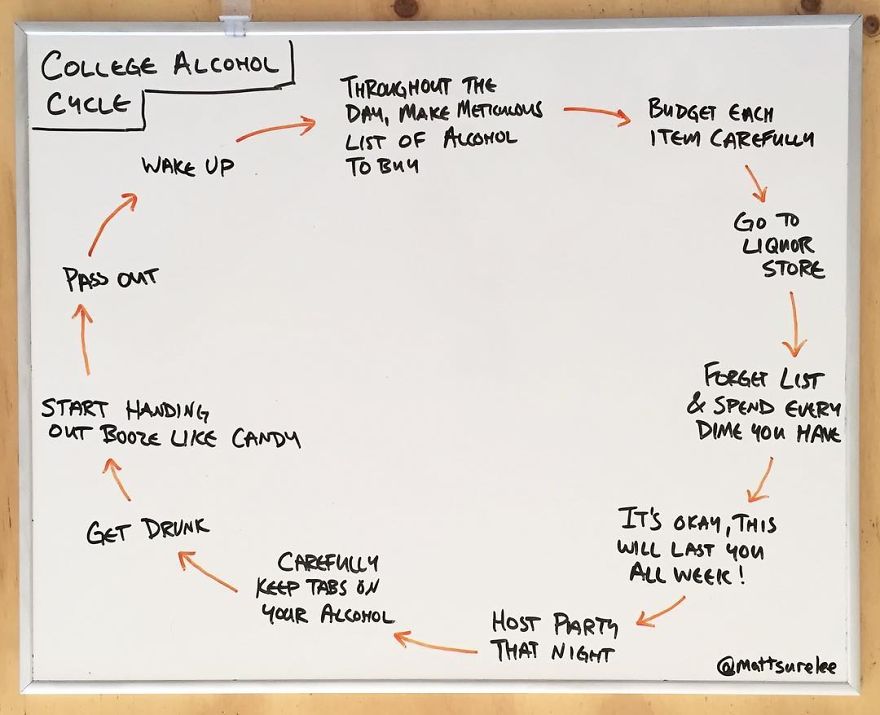 COLLEGE ALCOHOL
CYCLE
WAKE UP
THROUGHOUT THE
DAY, MAKE METICULOUS
LIST OF ALCOHOL
TO BUY
BUDGET EACH
ITEM CAREFULLY
GO TO
LIQUOR
STORE
FORGET LIST
& SPEND EVERY
DIME YOU HAVE
IT'S OKAY, THIS
WILL LAST YOU
ALL WEEK!
HOST PARTY
THAT NIGHT
CAREFULLY
KEEP TABS ON
YOUR ALCOHOL
GET DRUNK
START HANDING
OUT BOOZE LIKE CANDY
PASS OUT
@mattsurelee